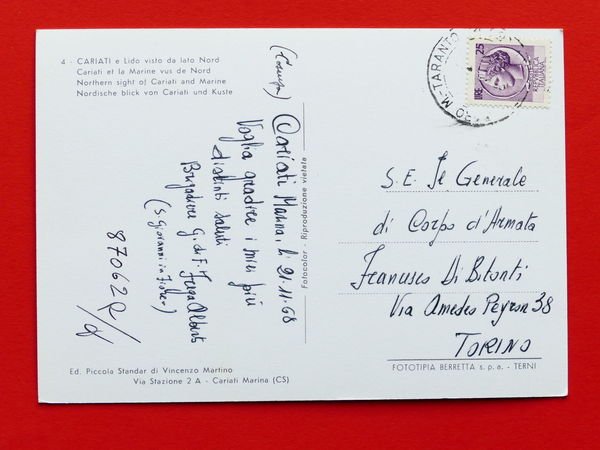 4 - CARIATI e Lido visto da lato Nord
Cariati et la Marine vus de Nord
Northern sight of Cariati and Marine
Nordische blick von Cariati und Kuste
(Cosenza)
Cariati Marina, lì 21.11.68
Voglia gradire i miei più
distinti saluti
Brigadiere G. di F. Alberto
(S. Giovanni in Fiore)
87062R/
Fotocolor - Riproduzione vietata
LIRE 25
REPUBBLICA
ITALIANA
M-TARANTO
S.E. Il Generale
di Corpo d'Armata
Francesco Di Bitonti
Via Amedeo Peyron 38
TORINO
Ed. Piccola Standar di Vincenzo Martino
Via Stazione 2 A - Cariati Marina (CS)
FOTOTIPIA BERRETTA s.p.a. - TERNI